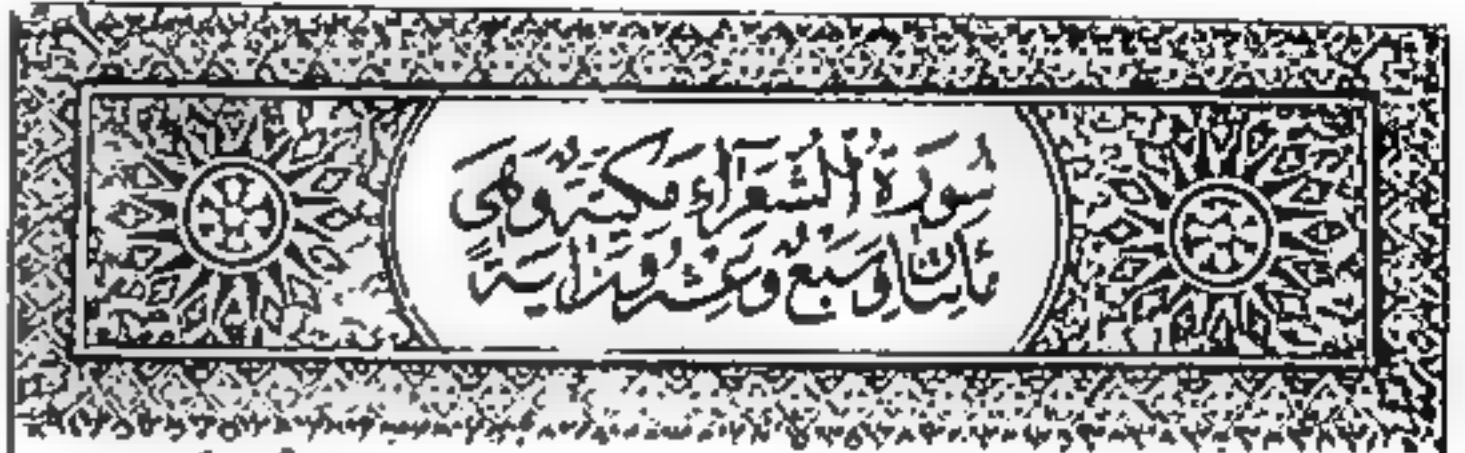 سُورَةُ ٱلشُّعَرَآءِ مَكِّيَّةٌ وَهِىَ
مِائَتَانِ وَسَبْعٌ وَعِشْرُونَ اٰيَةً